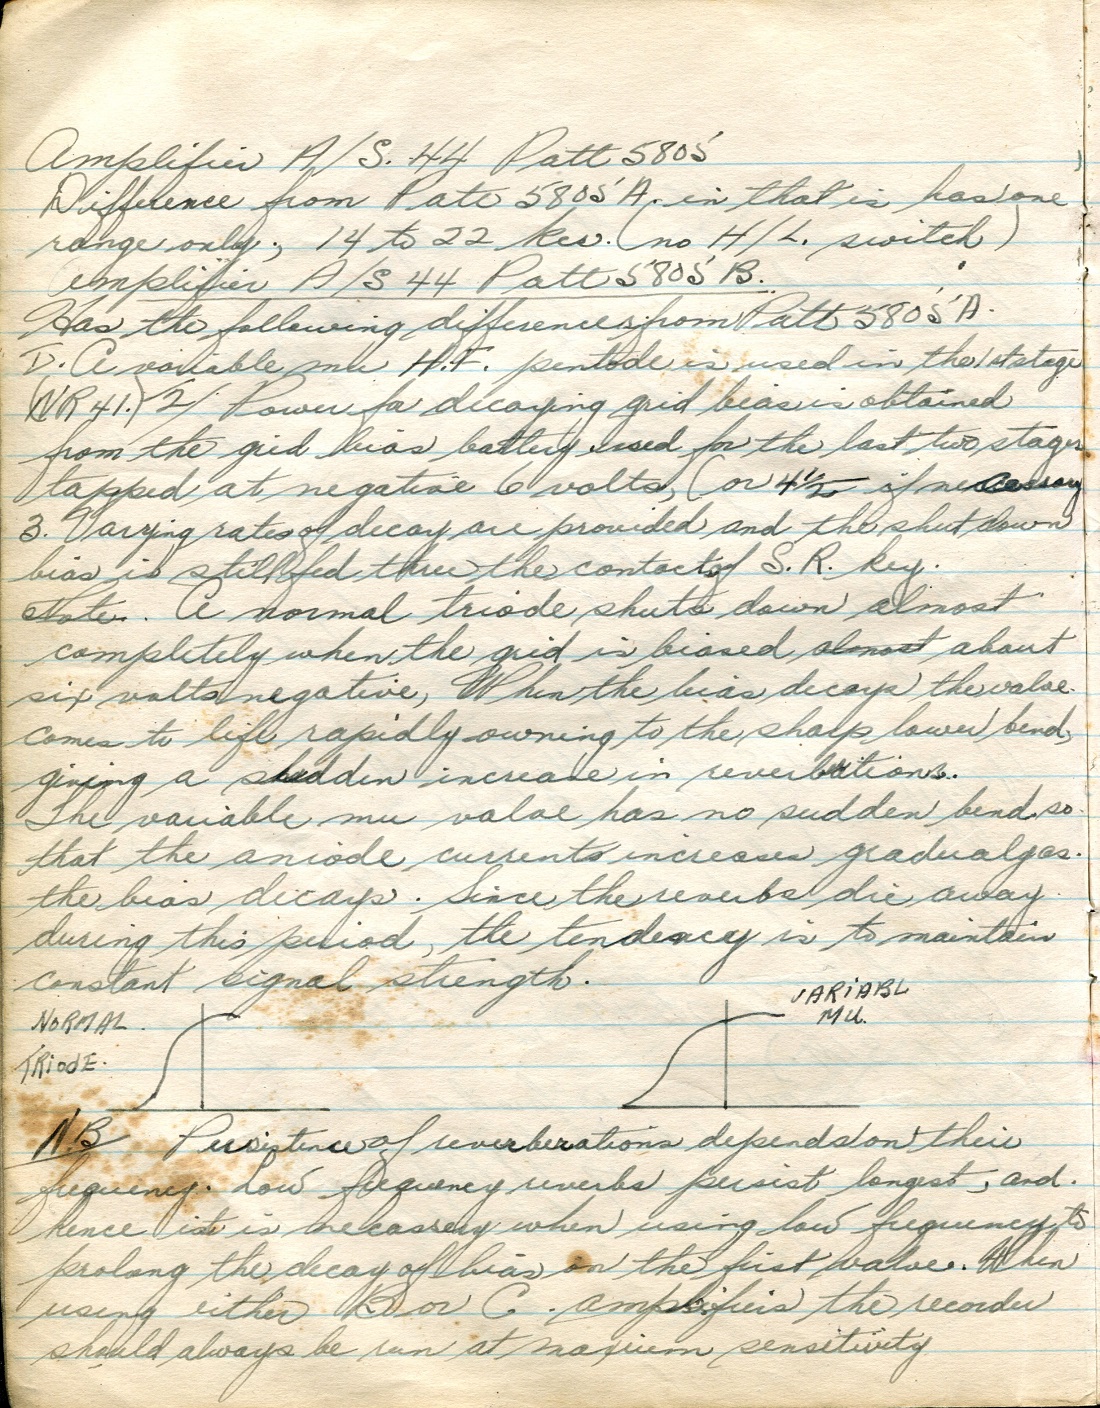 Amplifier A/S. 44 Patt 5805
Difference from Patt 5805 A. in that is has one
range only; 14 to 22 kcs. (no H/L. switch)
amplifier A/S 44 Patt 5805 B.
Has the following differences from Patt 5805 A.
1). A variable mu H.F. pentode is used in the 1st stage
(NR 41.) 2/ Power for decaying grid bias is obtained
from the grid bias battery used for the last two stages
tapped at negative 6 volts, (or 4½ if necessary
3. Varying rates of decay are provided and the shut down
bias is still fed three the contact of S.R. key.
Note. A normal triode shuts down almost
completely when the grid is biased almost about
six volts negative, When the bias decays the valve
comes to life rapidly owning to the sharp lower bend,
giving a sudden increase in reverbations.
The variable mu valve has no sudden bend, so
that the aniode currents increases gradualy as
the bias decays. Since the reverbs die away
during this period, the tendency is to maintain
constant signal strength.
NORMAL
TRIODE.
VARIABL
MU.
N.B Persistence of reverberations depends on their
frequency. Low frequency reverbs persist longest, and
hence ist is necessery when using low frequency to
prolong the decay of bias on the first valve. When
using either B or C. amplifiers the recorder
should always be run at maxium sensitivity